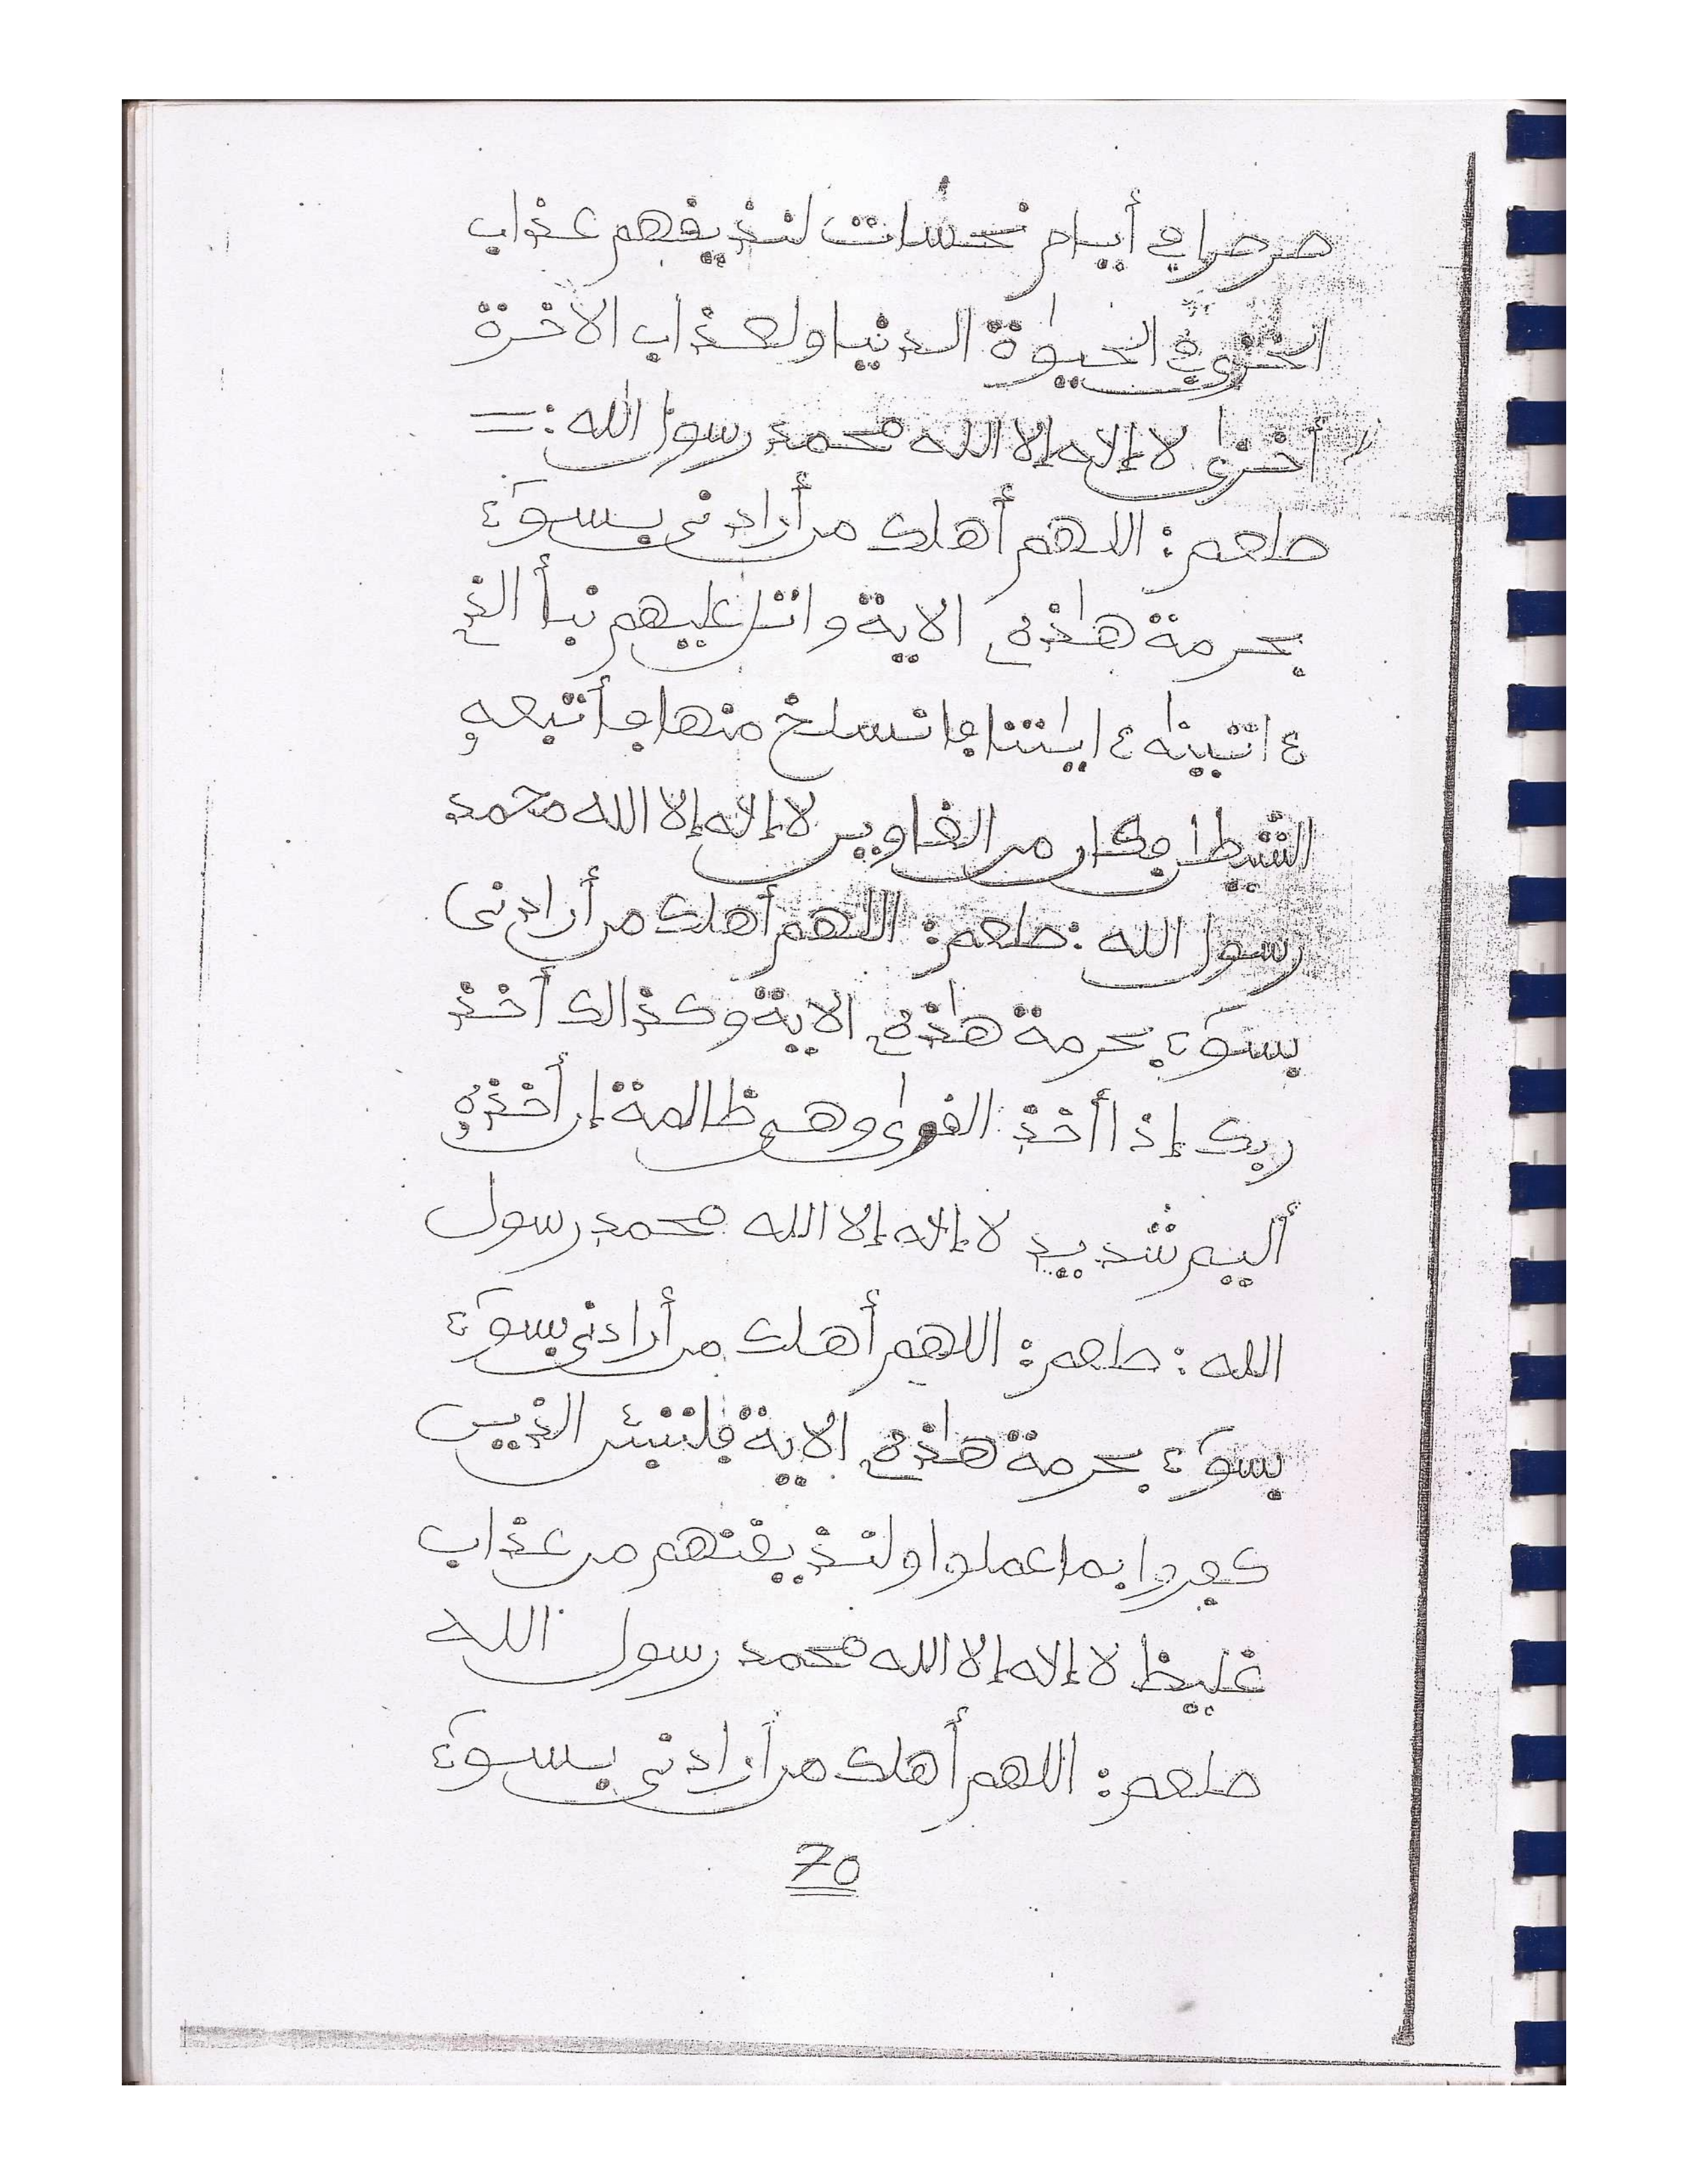 صرصرا في أيام نحسات لنذيقهم عذاب
الخزي في الحيوة الدنيا ولعذاب الاخرة
أخزى لا إله إلا الله محمد رسول الله :=
صلعم : اللهم أهلك من أرادني بسوء
بحرمة هاذه الاية واتل عليهم نبأ الذي
ءاتينه ءايتنا فانسلخ منها فأتبعه
الشيطن فكان من الغاوين لا إله إلا الله محمد
رسول الله : صلعم : اللهم أهلك من أرادني
بسوء بحرمة هاذه الاية وكذالك أخذ
ربك إذا أخذ القرى وهي ظالمة إن أخذه
أليم شديد لا إله إلا الله محمد رسول
الله : صلعم : اللهم أهلك من أرادني بسوء
بسوء بحرمة هاذه الاية فلننبئن الذين
كفروا بما عملوا ولنذيقنهم من عذاب
غليظ لا إله إلا الله محمد رسول الله
صلعم : اللهم أهلك من أرادني بسوء
70